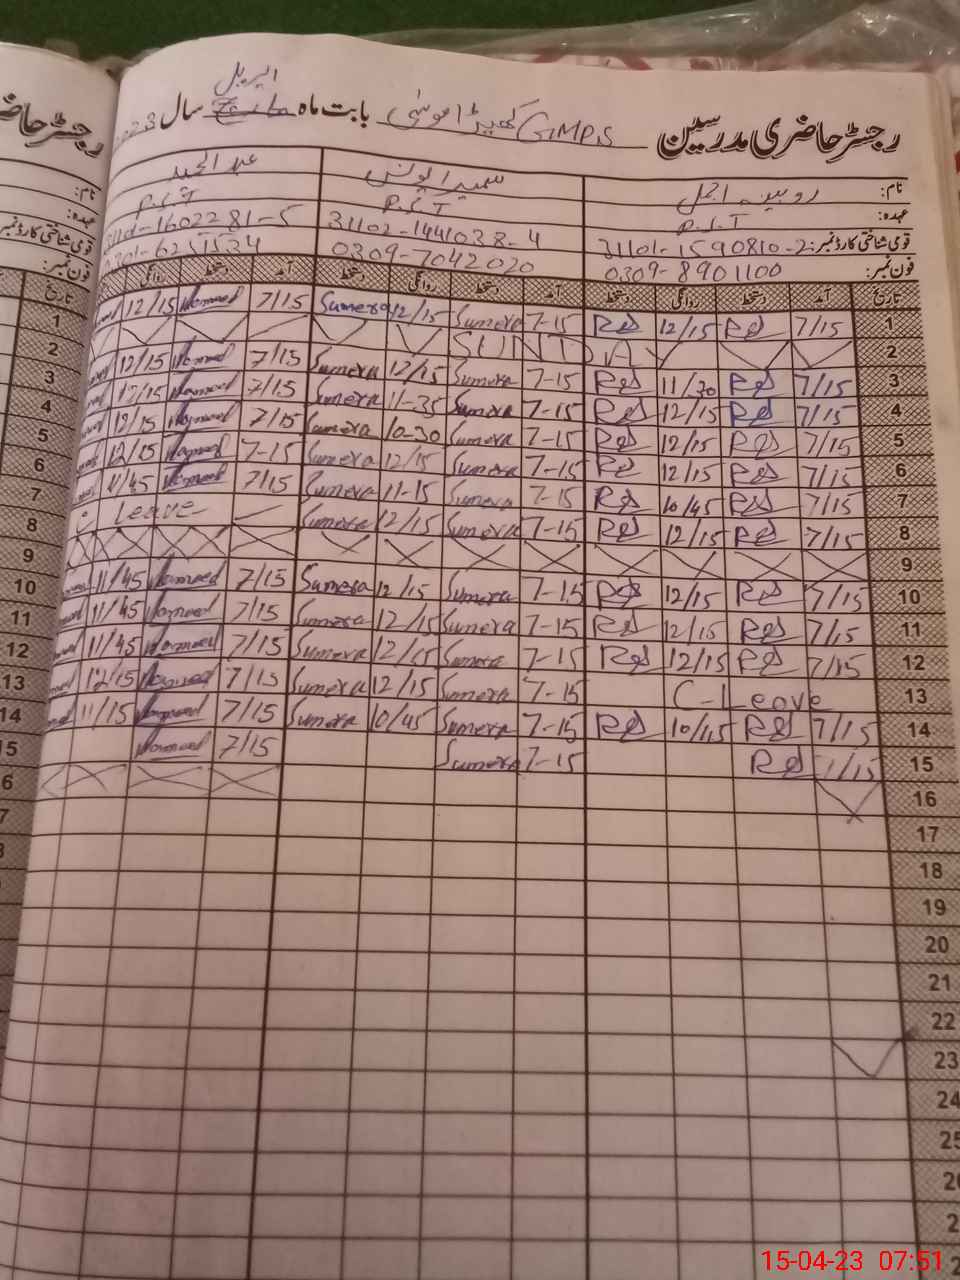 رجسٹر حاضری مدرسین GMPS کھیڑا موسیٰ بابت ماہ اپریل سال 2023
نام: روبینہ اجمل سمیرا یونس عبدالحمید
عہدہ: P.S.T P.S.T P.S.T
قومی شناختی کارڈ نمبر: 31101-1590810-2 31102-1441038-4
فون نمبر: 0309-8901100 0309-7042020
تاریخ آمد دستخط روانگی دستخط آمد دستخط روانگی دستخط آمد روانگی تاریخ
1 7/15 Rd 12/15 Rd 7-15 Sumera 12/15 Sumera 7/15 Hameed 12/15 1
2 SUNDAY 2
3 7/15 Rd 11/30 Rd 7-15 Sumera 12/15 Sumera 7/15 Hameed 12/15 3
4 7/15 Rd 12/15 Rd 7-15 Sumera 11-35 Sumera 7/15 Hameed 12/15 4
5 7/15 Rd 12/15 Rd 7-15 Sumera 10-30 Sumera 7/15 Hameed 12/15 5
6 7/15 Rd 12/15 Rd 7-15 Sumera 12/15 Sumera 7-15 Hameed 12/15 6
7 7/15 Rd 10/45 Rd 7-15 Sumera 11-15 Sumera 7/15 Hameed 11/45 7
8 7/15 Rd 12/15 Rd 7-15 Sumera 12/15 Sumera Leave 8
9 9
10 7/15 Rd 12/15 Rd 7-15 Sumera 12/15 Sumera 7/15 Hameed 11/45 10
11 7/15 Rd 12/15 Rd 7-15 Sumera 12/15 Sumera 7/15 Hameed 11/45 11
12 7/15 Rd 12/15 Rd 7-15 Sumera 12/15 Sumera 7/15 Hameed 11/45 12
13 C-Leave 7-15 Sumera 12/15 Sumera 7/15 Hameed 12/15 13
14 7/15 Rd 10/45 Rd 7-15 Sumera 10/45 Sumera 7/15 Hameed 11/15 14
15 7/15 Rd 7-15 Sumera 7/15 Hameed 15
16
17
18
19
20
21
22
23
24
25
15-04-23 07:51